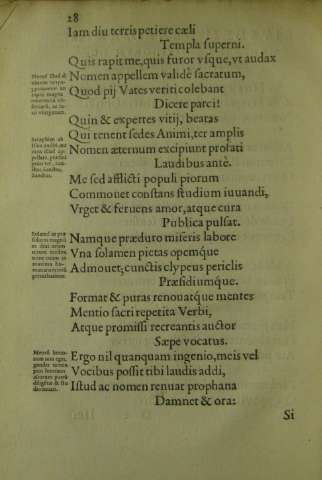 28
Iam diu terris petiere cæli
Templa superni.
Quis rapit me, quis furor vsque, vt audax
Nomen appellem validè sacratum,
Quod pij Vates veriti colebant
Dicere parci!
Quin & expertes vitij, beatas
Qui tenent sedes Animi, ter amplis
Nomen æternum excipiunt prolati
Laudibus antè.
Me sed afflicti populi piorum
Commouet constans studium iuuandi,
Vrget & feruens amor, atque cura
Publica pulsat.
Namque præduto miseris labore
Vna solamen pietas opemque
Admouet, cunctis clypeus periclis
Præsidiumque.
Format & puras renouatque mentes
Mentio sacri repetita Verbi,
Atque promissi recreantis auctor
Sæpe vocatus.
Ergo nil quanquam ingenio, meis vel
Vocibus possit tibi laudis addi,
Istud ac nomen renuat prophana
Damnet & ora:
Si